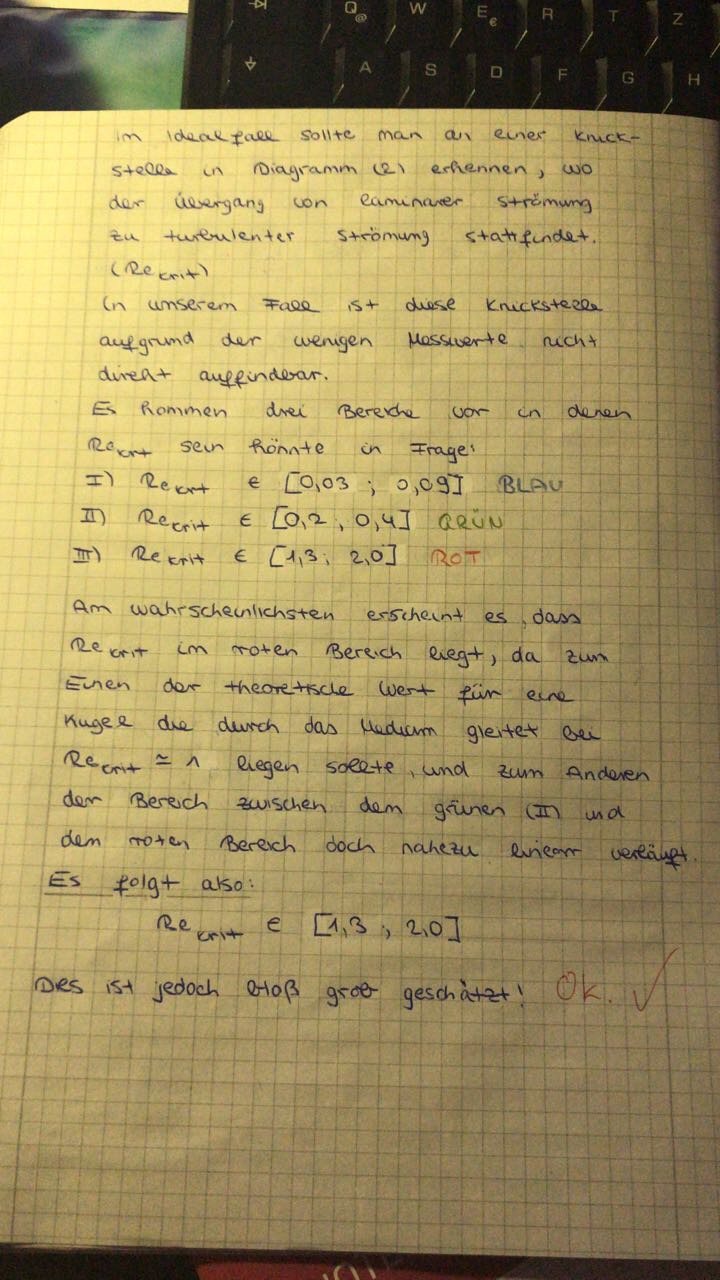 Q W E R T Z
@ €
A S D F G H
Im Idealfall sollte man an einer Knick-
stelle in Diagramm (2) erkennen, wo
der Übergang von laminarer Strömung
zu turbulenter Strömung stattfindet.
(Re krit)
In unserem Fall ist diese Knickstelle
aufgrund der wenigen Messwerte nicht
direkt auffindbar.
Es kommen drei Bereiche vor in denen
Re krit sein könnte in Frage:
I) Re krit ∈ [0,03 ; 0,09] BLAU
II) Re krit ∈ [0,2 ; 0,4] GRÜN
III) Re krit ∈ [1,3 ; 2,0] ROT
Am wahrscheinlichsten erscheint es, dass
Re krit im roten Bereich liegt, da zum
Einen der theoretische Wert für eine
Kugel die durch das Medium gleitet bei
Re krit ≃ 1 liegen sollte, und zum Anderen
der Bereich zwischen dem grünen (II) und
dem roten Bereich doch nahezu linear verläuft.
Es folgt also:
Re krit ∈ [1,3 ; 2,0]
Dies ist jedoch bloß grob geschätzt! Ok. ✓